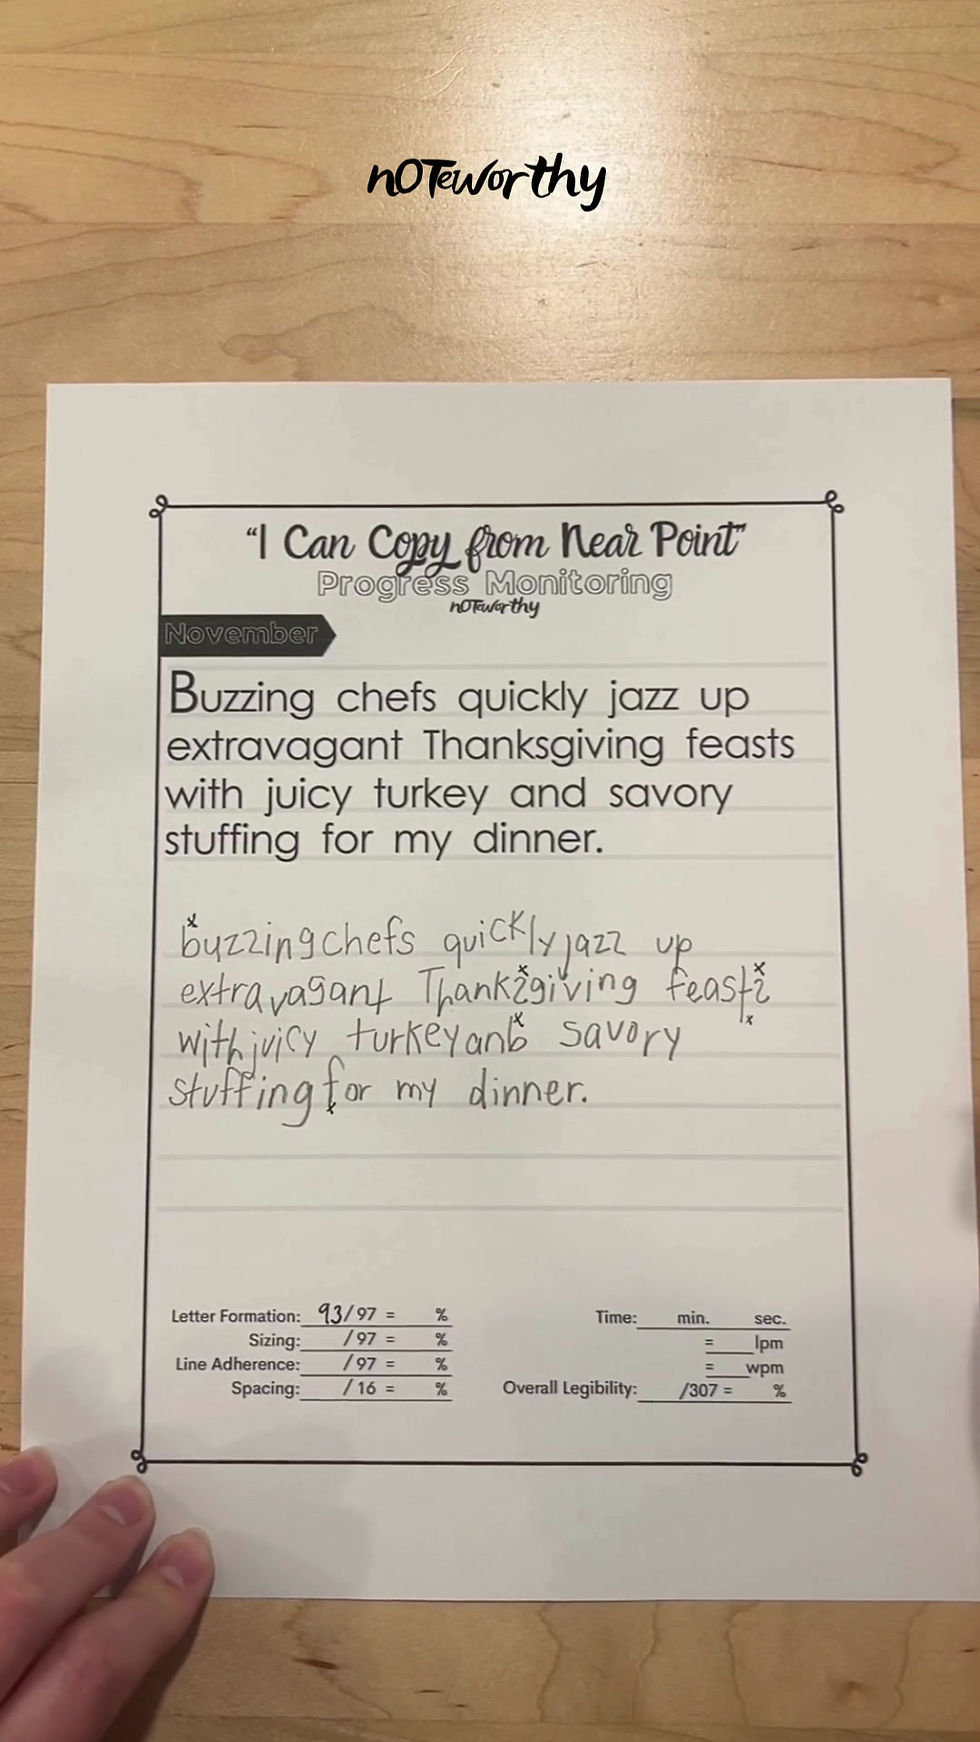 nOTeworthy
“I Can Copy from Near Point”
Progress Monitoring
nOTeworthy
November
Buzzing chefs quickly jazz up
extravagant Thanksgiving feasts
with juicy turkey and savory
stuffing for my dinner.
x
buzzing chefs quickly jazz up
x x
extravagant Thanksgiving feasts
x x
with juicy turkey anb savory
stuffing for my dinner.
x
Letter Formation: 93/97 = %
Sizing: /97 = %
Line Adherence: /97 = %
Spacing: /16 = %
Time: min. sec.
= lpm
= wpm
Overall Legibility: /307 = %